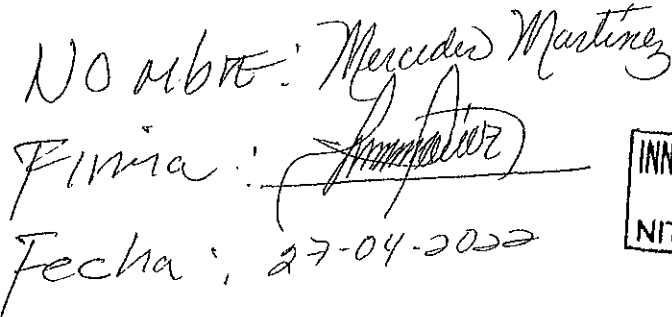 Nombre: Mercedes Martínez
Firma:
Fecha: 27-04-2022
INN
NIT